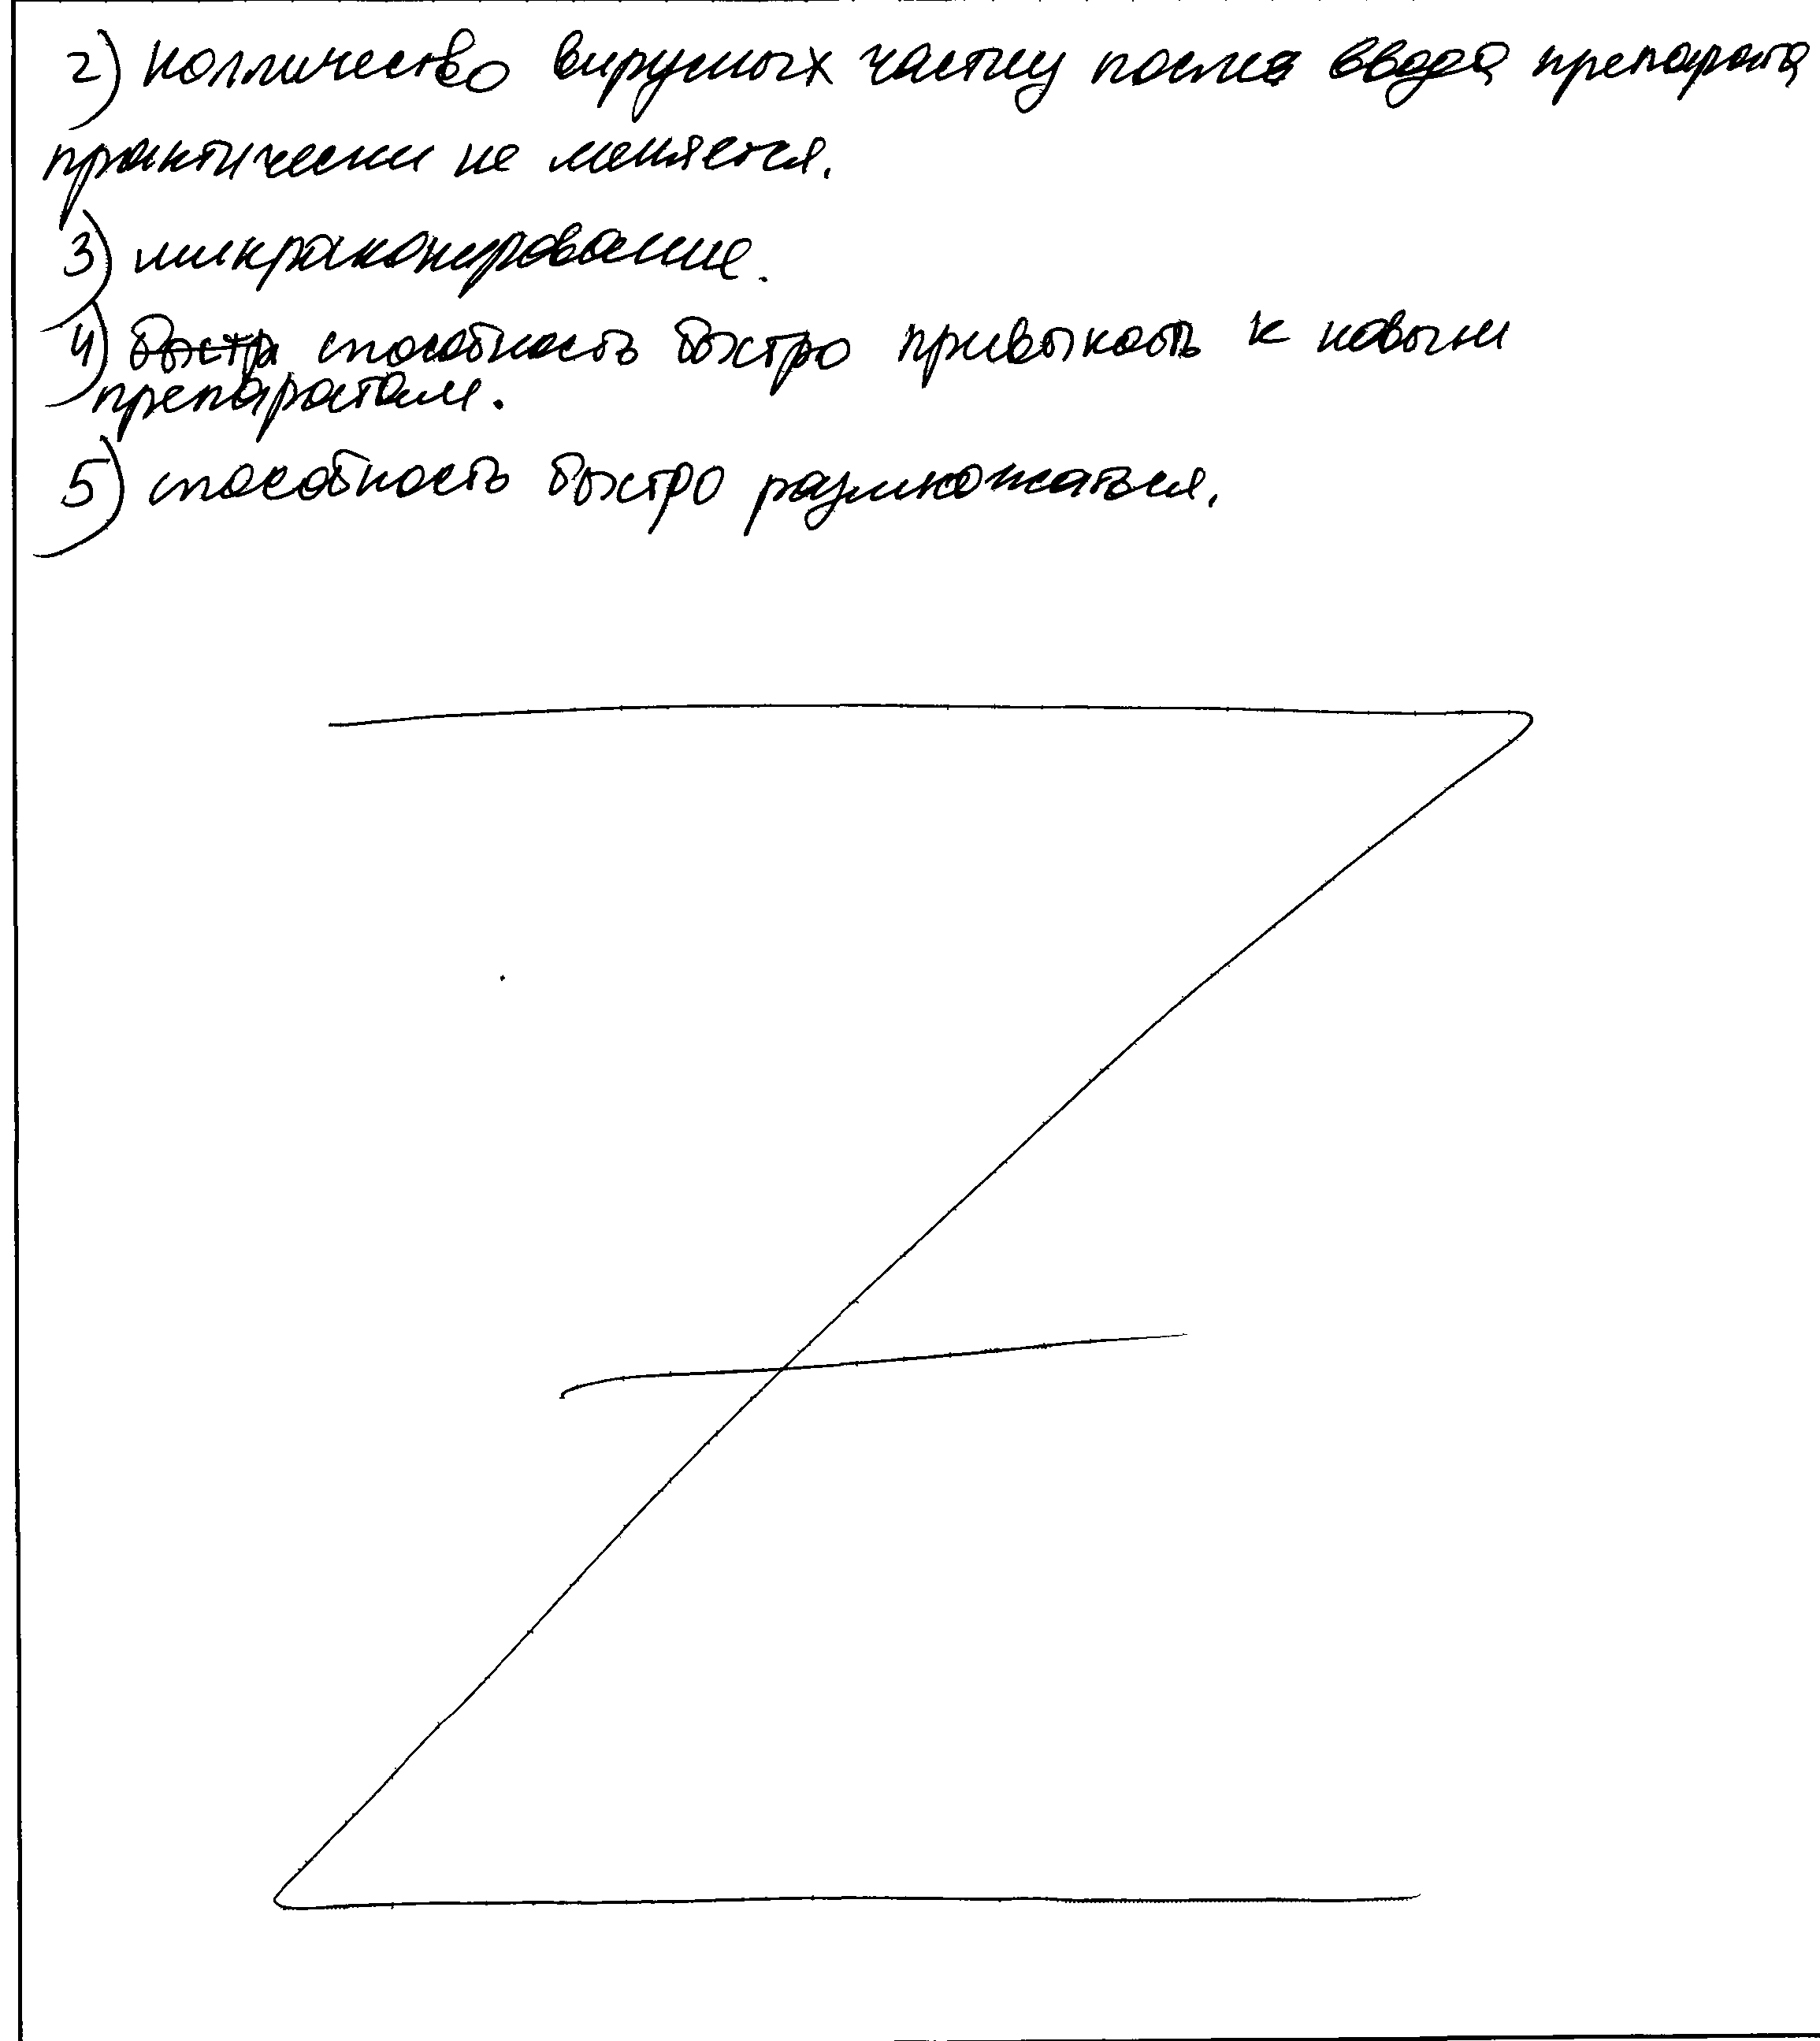 2) колличество вирусных частиц после ввода препарата
практически не меняется.
3) микракопирование.
4) быстр способность быстро привыкать к новым
препаратам.
5) способность быстро размножаться.